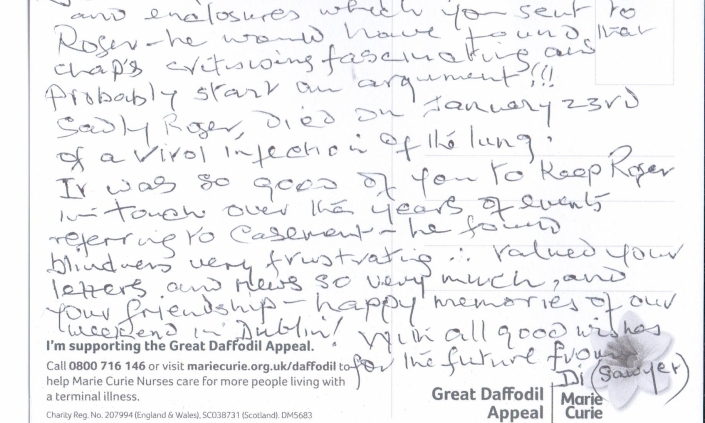 and enclosures which you sent to
Roger – he would have found that
chap's critisising fascinating and
Probably start an argument!!!
Sadly Roger, Died on January 23rd
of a viral infection of the lung.
It was so good of you to keep Roger
in touch over the years of events
referring to Casement – he found
blindness very frustrating ∴ valued your
letters and news so very much, and
your friendship – happy memories of our
weekend in Dublin! With all good wishes
for the future from
Di (Sawyer)
I'm supporting the Great Daffodil Appeal.
Call 0800 716 146 or visit mariecurie.org.uk/daffodil to
help Marie Curie Nurses care for more people living with
a terminal illness.
Charity Reg. No. 207994 (England & Wales), SC038731 (Scotland). DM5683
Great Daffodil
Appeal
Marie
Curie